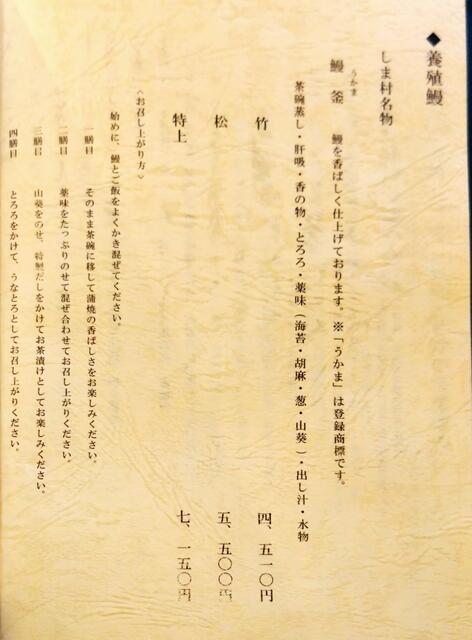 ◆養殖鰻
しま村名物
鰻釜 鰻を香ばしく仕上げております。※「うかま」は登録商標です。
うかま
茶碗蒸し・肝吸・香の物・とろろ・薬味(海苔・胡麻・葱・山葵)・出し汁・水物
竹 四、五一〇円
松 五、五〇〇円
特上 七、一五〇円
〈お召し上がり方〉
始めに、鰻とご飯をよくかき混ぜてください。
一膳目 そのまま茶碗に移して蒲焼の香ばしさをお楽しみください。
二膳目 薬味をたっぷりのせて混ぜ合わせてお召し上がりください。
三膳目 山葵をのせ、特製だしをかけてお茶漬けとしてお楽しみください。
四膳目 とろろをかけて、うなとろとしてお召し上がりください。